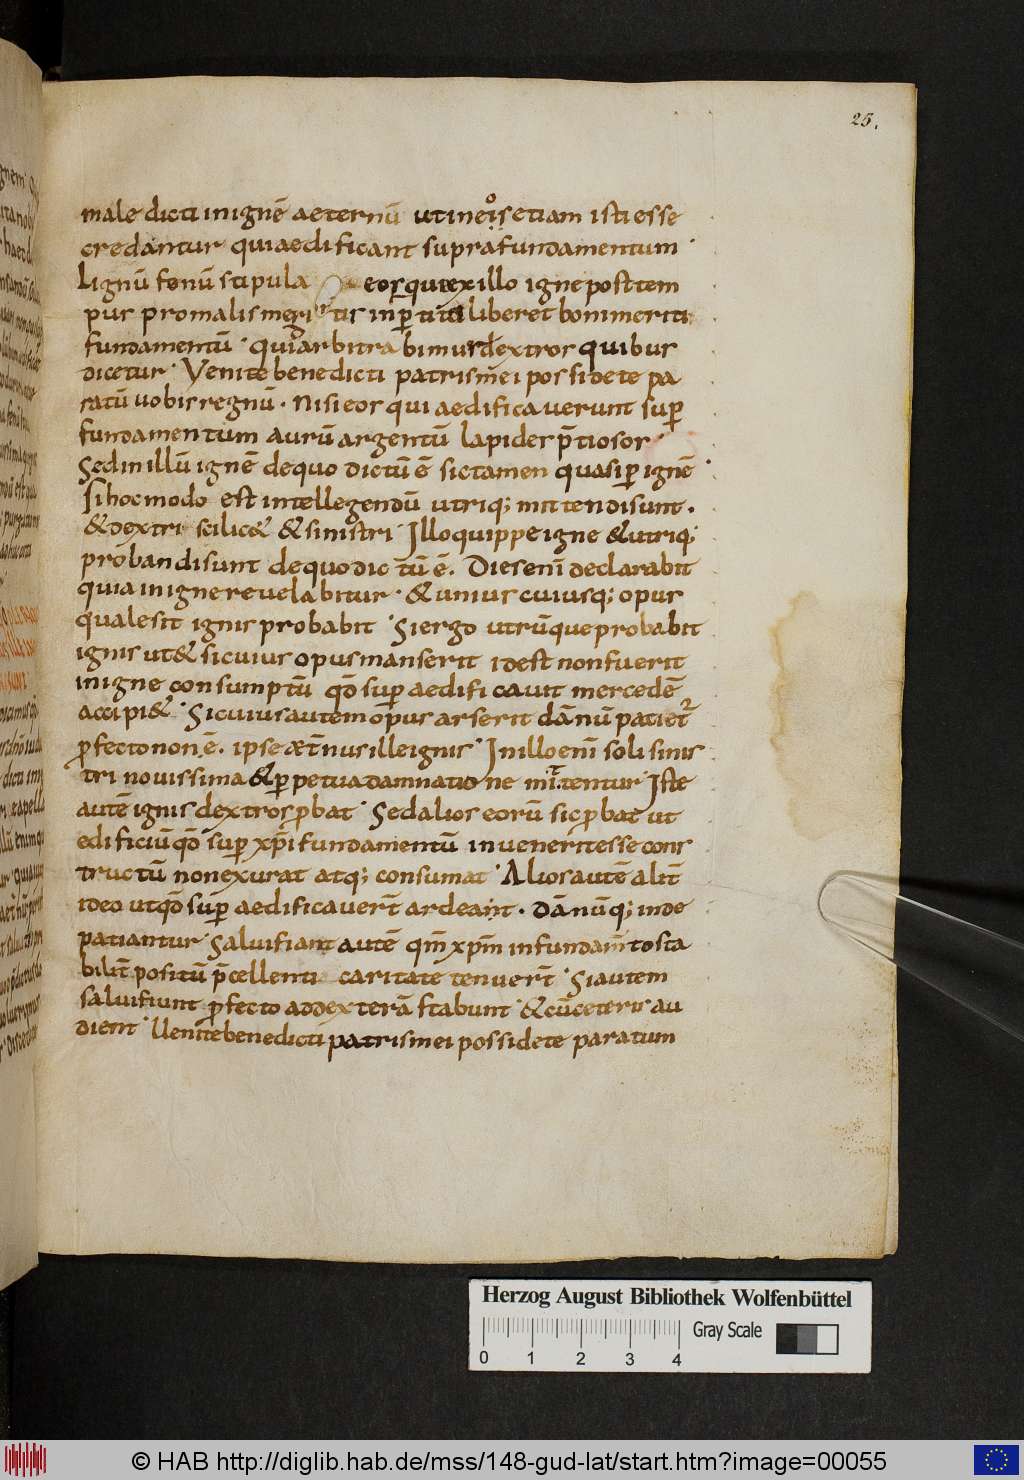 25.
male dicti in ignē aeternū ut in eois etiam isti esse
credantur qui aedificant supra fundamentum
Lignū fenū stipula eos qui ex illo igne post tem
pus pro malis meritis inp̄titū liberet boni meriti
fundamentū · quia arbitrabimur dextros quibus
dicetur · Venite benedicti patris mei possidete pa
ratū uobis regnū · nisi eos qui aedificaverunt sup̄
fundamentum aurū argentū lapides p̄tiosos ·
Sed in illū ignē de quo dictū ē sic tamen quasi p̄ ignē ·
si hoc modo est intellegendū utriq; mittendi sunt ·
& dextri scilic& & sinistri · Illo quippe igne & utriq;
probandi sunt de quo dictū ē. Dies eni declarabit
quia in igne revelabitur · & unius cuiusq; opus
quale sit ignis probabit · Si ergo utrūque probabit
ignis ut & si cuius opus manserit id est non fuerit
in igne consumptū qd̄ sup̄ aedificavit mercedē
accipi& · Si cuius autem opus arserit dānū patiet̄
p̄fecto non ē. ipse aet̄nus ille ignis · In illo enī soli sinis
tri novissima & p̄petua damnatione mittentur Iste
autē ignis dextros p̄bat · Sed alios eorū sic p̄bat ut
edificiū qd̄ sup̄ xp̄i fundamentū inveneritesse cons
tructū non exurat atq; consumat · Alios autē alit̄
ideo ut qd̄ sup̄ aedificavert̄ ardeant · Dānūq; inde
patiantur · Salui fiant autē qm̄ xp̄m in fundam̄to sta
bilit̄ positū p̄cellenti caritate tenuer̄t · Si autem
salui fiunt p̄fecto ad dexterā stabunt · & cū ceteris au
dient · Uenite benedicti patris mei possidete paratum
Herzog August Bibliothek Wolfenbüttel
Gray Scale
0 1 2 3 4
© HAB http://diglib.hab.de/mss/148-gud-lat/start.htm?image=00055